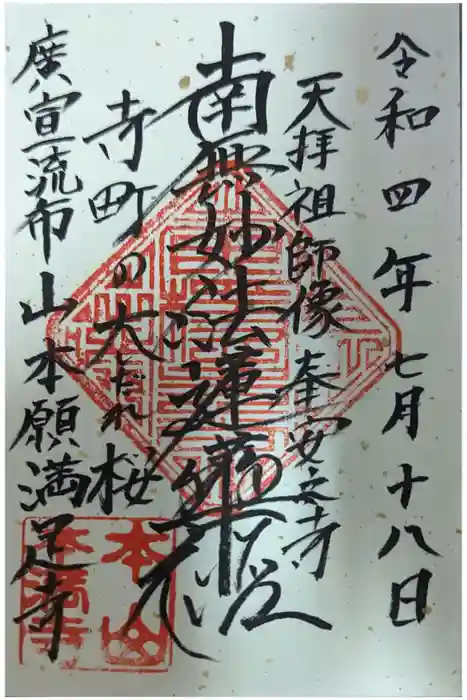 令和四年七月十八日
天拝祖師像 奉安之寺
南無妙法蓮華経
寺町の大しだれ桜
廣宣流布山本願満足寺
本山